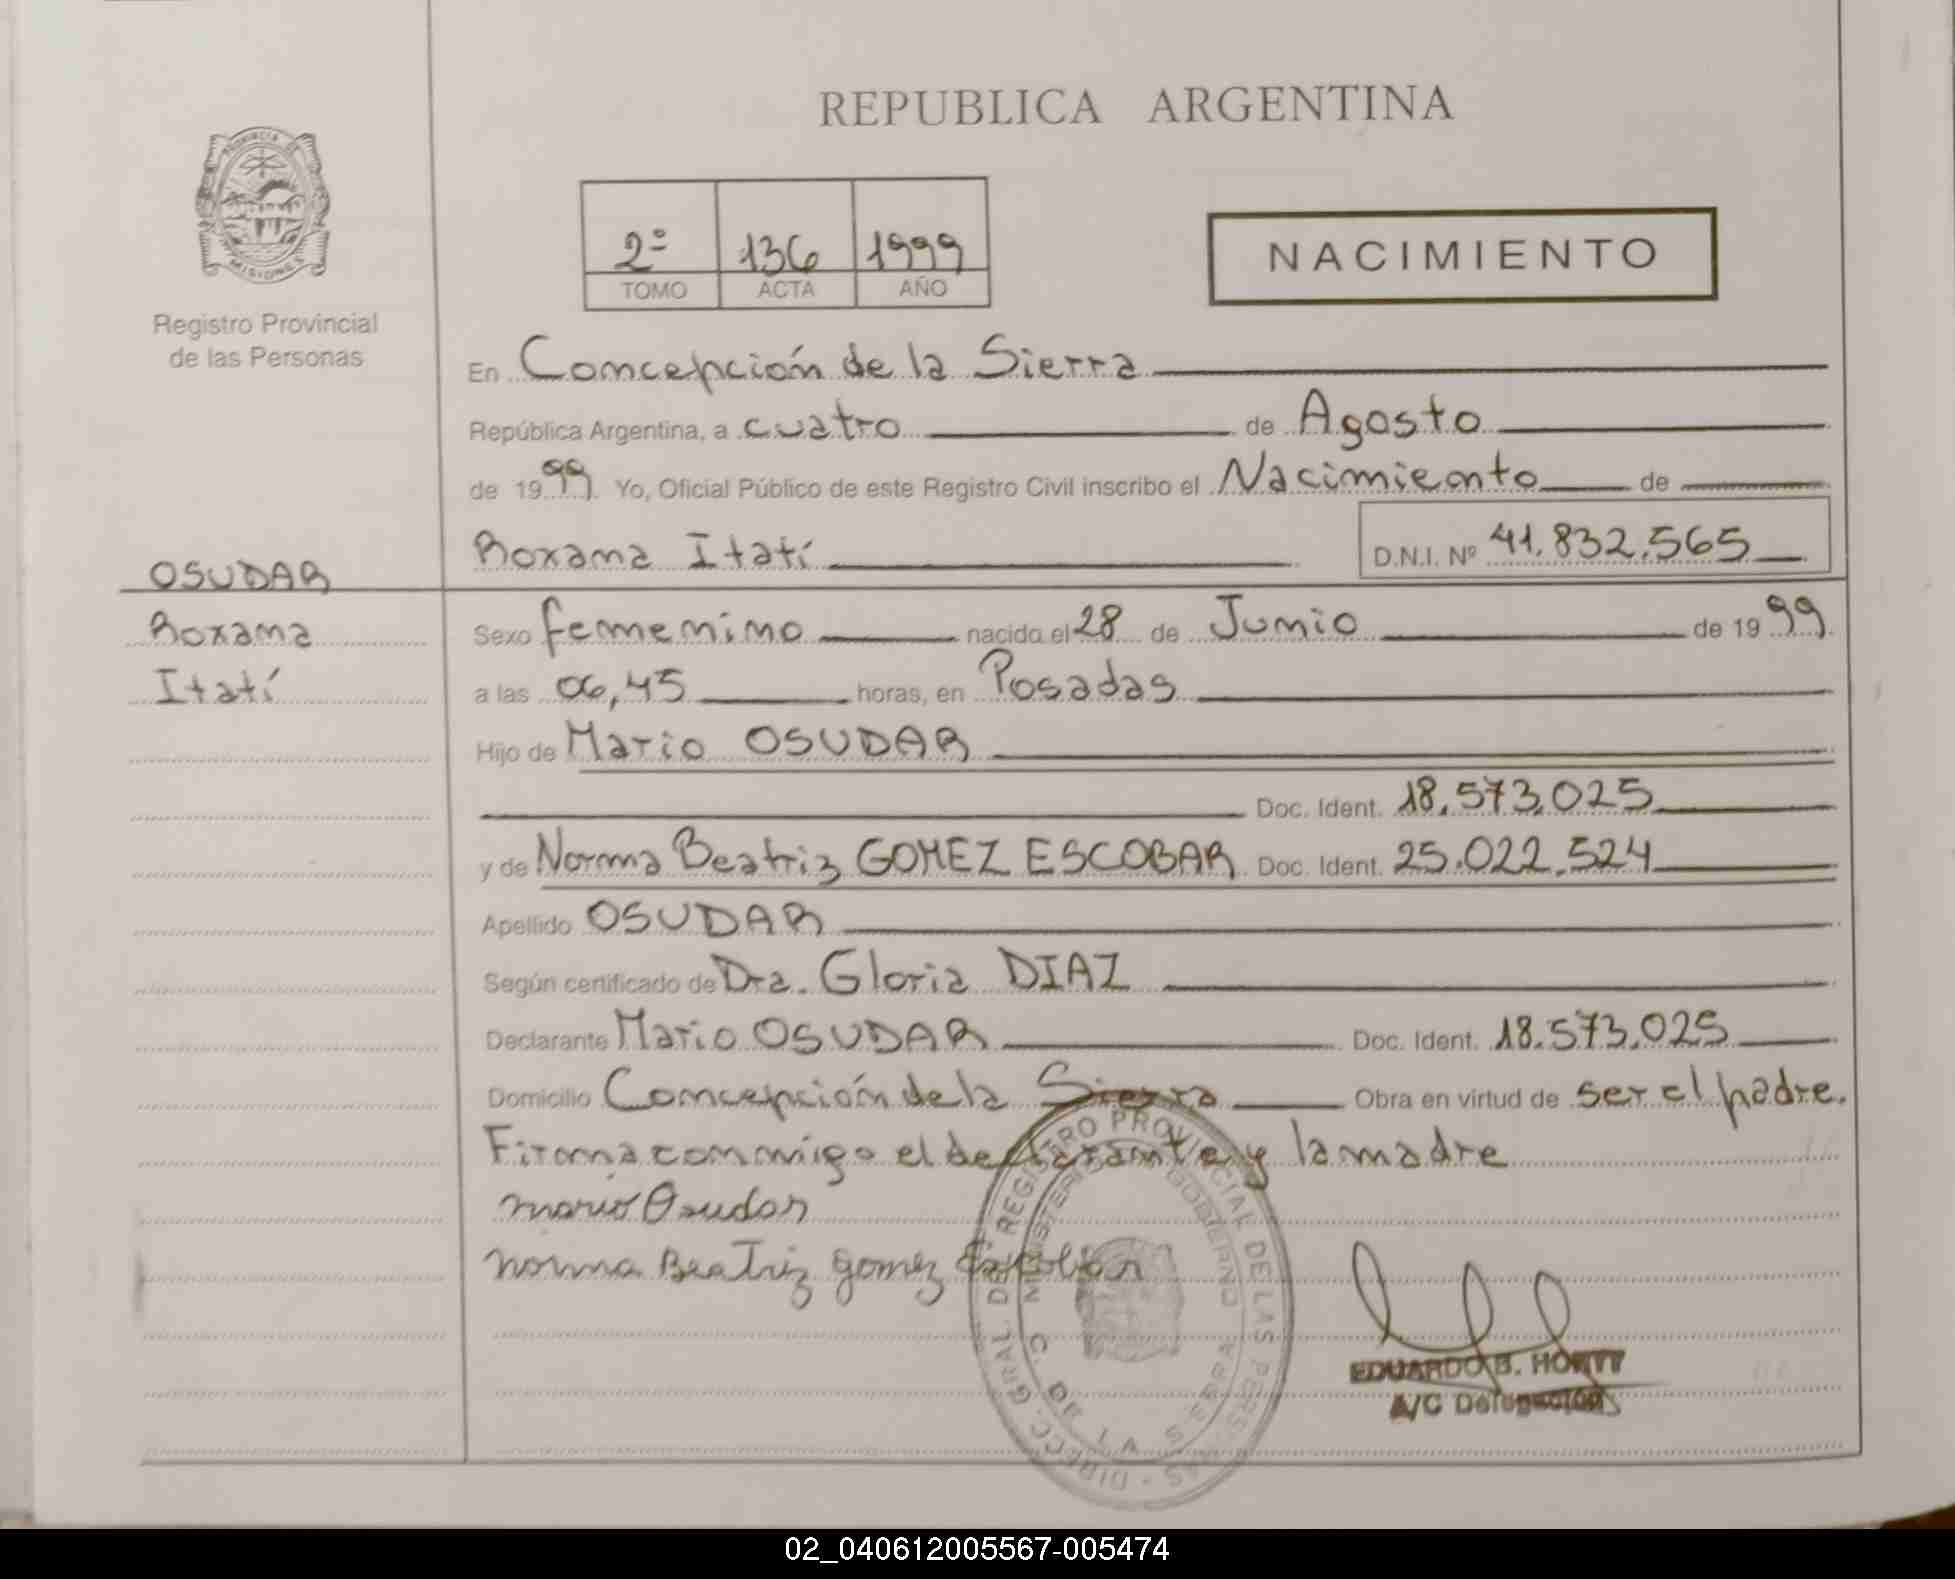 REPUBLICA ARGENTINA
PROVINCIA DE
MISIONES
Registro Provincial
de las Personas
2º 136 1999
TOMO ACTA AÑO
NACIMIENTO
En Concepción de la Sierra
República Argentina, a cuatro de Agosto
de 1999. Yo, Oficial Público de este Registro Civil inscribo el Nacimiento de
Roxana Itatí D.N.I. Nº 41.832.565
OSUDAR
Roxana
Itatí
Sexo femenino nacido el 28 de Junio de 1999.
a las 06,45 horas, en Posadas
Hijo de Mario OSUDAR
Doc. Ident. 18.573.025
y de Norma Beatriz GOMEZ ESCOBAR Doc. Ident. 25.022.524
Apellido OSUDAR
Según certificado de Dra. Gloria DIAZ
Declarante Mario OSUDAR Doc. Ident. 18.573.025
Domicilio Concepción de la Sierra Obra en virtud de ser el padre.
Firma conmigo el declarante y la madre
Mario Osudar
Norma Beatriz Gomez Escobar
DIRECC. GRAL. DEL REGISTRO PROVINCIAL DE LAS PERSONAS
MINISTERIO GOBIERNO
C. DE LA SIERRA
EDUARDO B.
A/C Delegación
02_040612005567-005474